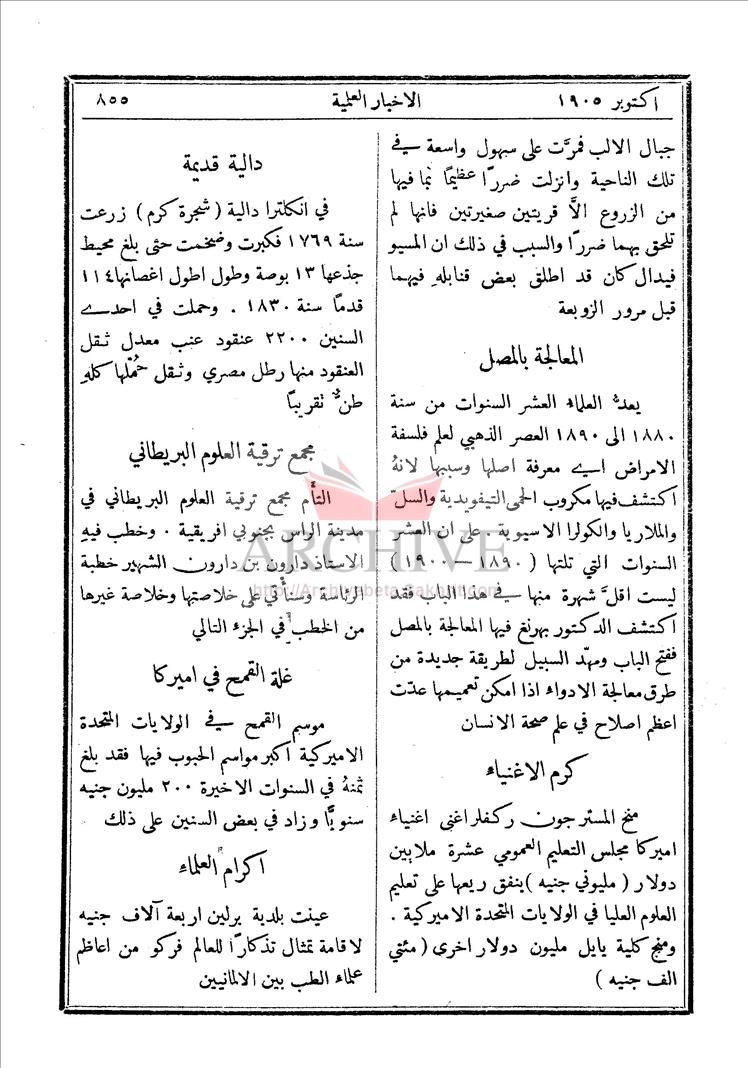 اكتوبر ١٩٠٥
الاخبار العلمية
٨٥٥
جبال الالب فمرَّت على سهول واسعة في
تلك الناحية وانزلت ضررًا عظيمًا بما فيها
من الزروع الاَّ قريتين صغيرتين فانها لم
تلحق بهما ضررًا والسبب في ذلك ان المسيو
فيدال كان قد اطلق بعض قنابله فيهما
قبل مرور الزوبعة
المعالجة بالمصل
يعدُّ العلماء العشر السنوات من سنة
١٨٨٠ الى ١٨٩٠ العصر الذهبي لعلم فلسفة
الامراض اي معرفة اصلها وسببها لانهُ
اكتشف فيها مكروب الحمى التيفويدية والسل
والملاريا والكولرا الاسيوية على ان العشر
السنوات التي تلتها (١٨٩٠ — ١٩٠٠)
ليست اقلَّ شهرة منها في هذا الباب فقد
اكتشف الدكتور بهرنغ فيها المعالجة بالمصل
ففتح الباب ومهَّد السبيل لطريقة جديدة من
طرق معالجة الادواء اذا امكن تعميمها عدَّت
اعظم اصلاح في علم صحة الانسان
كرم الاغنياء
منح المستر جون ركفلر اغنى اغنياء
اميركا مجلس التعليم العمومي عشرة ملايين
دولار (مليوني جنيه) ينفق ريعها على تعليم
العلوم العليا في الولايات المتحدة الاميركية .
ومنح كلية يايل مليون دولار اخرى (مئتي
الف جنيه)
دالية قديمة
في انكلترا دالية (شجرة كرم) زرعت
سنة ١٧٦٩ فكبرت وضخمت حتى بلغ محيط
جذعها ١٣ بوصة وطول اطول اغصانها ١١٤
قدمًا سنة ١٨٣٠ . وحملت في احدى
السنين ٢٢٠٠ عنقود عنب معدل ثقل
العنقود منها رطل مصري وثقل حملها كلهِ
طنٌّ تقريبًا
مجمع ترقية العلوم البريطاني
التأَم مجمع ترقية العلوم البريطاني في
مدينة الراس بجنوبي افريقية . وخطب فيهِ
الاستاذ دارون بن دارون الشهير خطبة
الرئاسة وسنأْتي على خلاصتها وخلاصة غيرها
من الخطب في الجزء التالي
غلة القمح في اميركا
موسم القمح في الولايات المتحدة
الاميركية اكبر مواسم الحبوب فيها فقد بلغ
ثمنهُ في السنوات الاخيرة ٢٠٠ مليون جنيه
سنويًّا وزاد في بعض السنين على ذلك
اكرام العلماء
عينت بلدية برلين اربعة آلاف جنيه
لاقامة تمثال تذكارًا للعالم فركو من اعاظم
علماء الطب بين الالمانيين
ARCHIVE
http://Archivebeta.Sakhrit.com